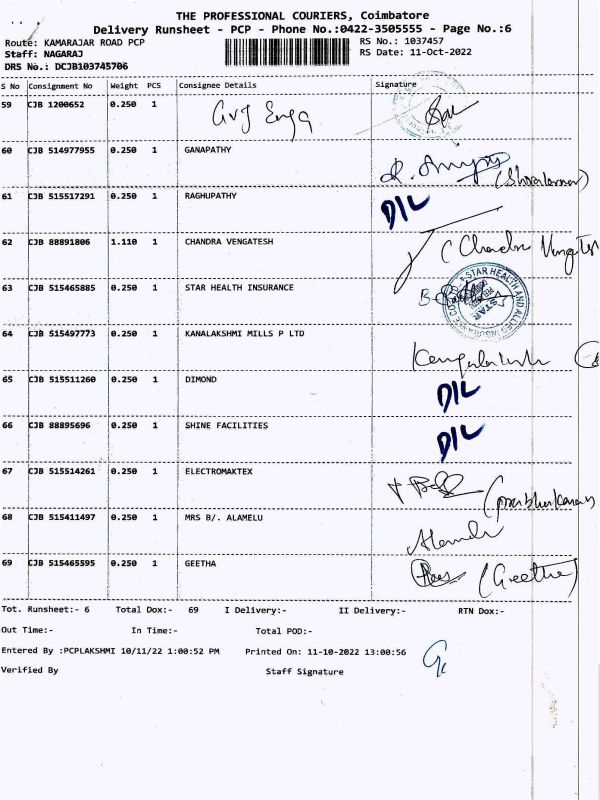 THE PROFESSIONAL COURIERS, Coimbatore
Delivery Runsheet - PCP - Phone No.:0422-3505555 - Page No.:6
Route: KAMARAJAR ROAD PCP RS No.: 1037457
Staff: NAGARAJ RS Date: 11-Oct-2022
DRS No.: DCJB103745706
S No Consignment No Weight PCS Consignee Details Signature
59 CJB 1200652 0.250 1
60 CJB 514977955 0.250 1 GANAPATHY
61 CJB 515517291 0.250 1 RAGHUPATHY D/L
62 CJB 88891806 1.110 1 CHANDRA VENGATESH
63 CJB 515465885 0.250 1 STAR HEALTH INSURANCE
STAR HEALTH AND ALLIED
STAR
64 CJB 515497773 0.250 1 KANALAKSHMI MILLS P LTD
65 CJB 515511260 0.250 1 DIMOND D/L
66 CJB 88895696 0.250 1 SHINE FACILITIES D/L
67 CJB 515514261 0.250 1 ELECTROMAKTEX
68 CJB 515411497 0.250 1 MRS B/. ALAMELU
69 CJB 515465595 0.250 1 GEETHA (Geetha)
Tot. Runsheet:- 6 Total Dox:- 69 I Delivery:- II Delivery:- RTN Dox:-
Out Time:- In Time:- Total POD:-
Entered By :PCPLAKSHMI 10/11/22 1:00:52 PM Printed On: 11-10-2022 13:00:56
Verified By Staff Signature